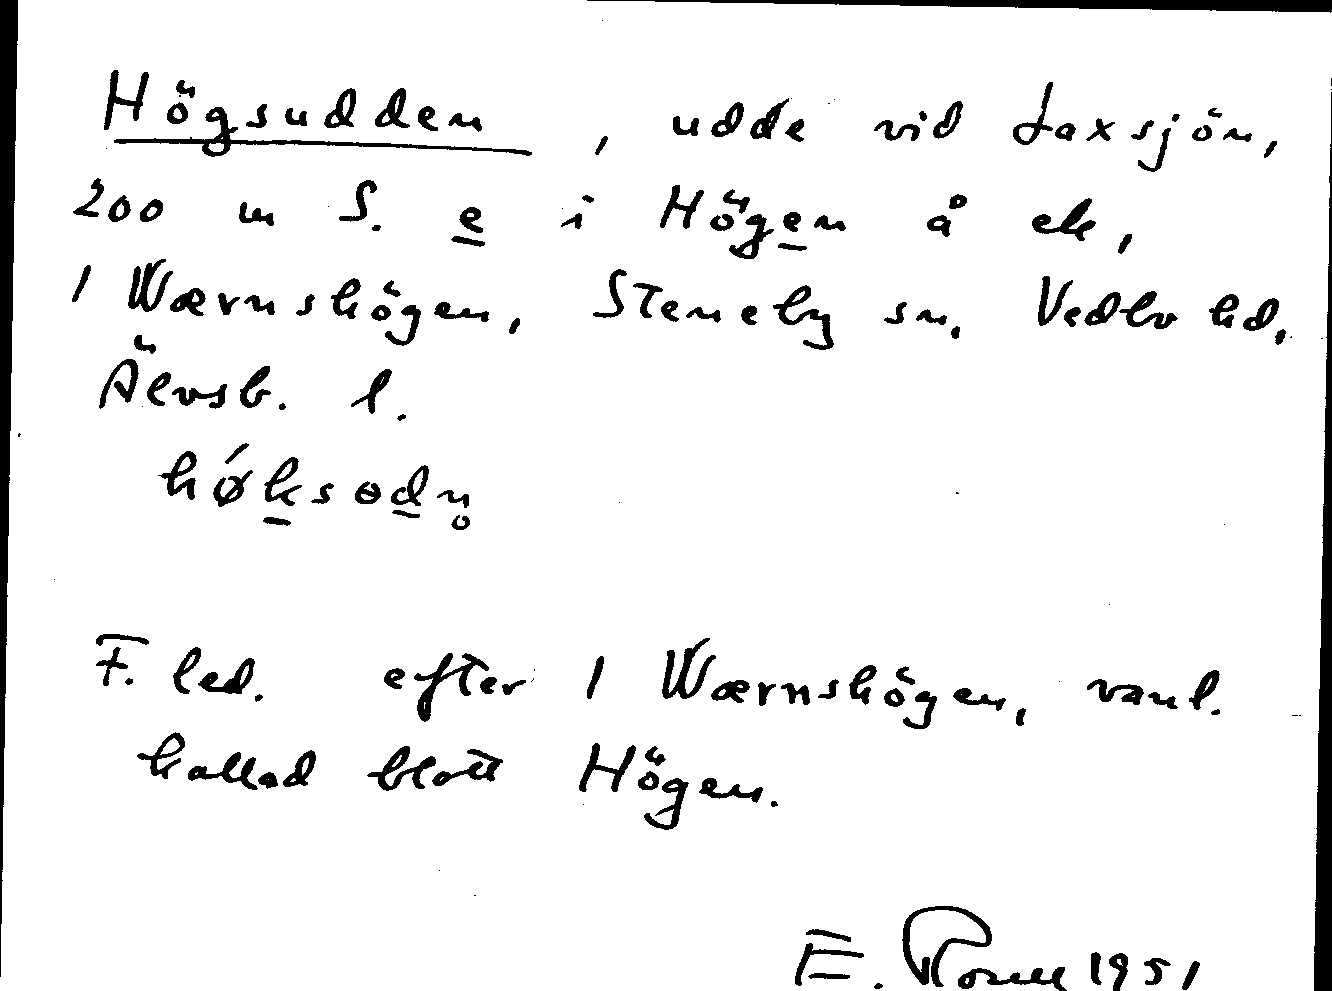 Högsudden, udde vid Laxsjön,
200 m S. e i Högen å ek,
1 Wærnshögen, Steneby sn, Vedbo hd.
Älvsb. l.
hǿksodn̥
F. led. efter 1 Wærnshögen, vanl.
kallad blott Högen.
E. 1951